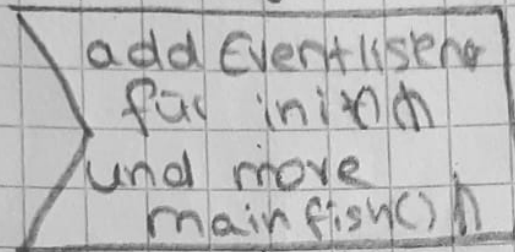 add Eventlistener
für init()
und move
mainfish()